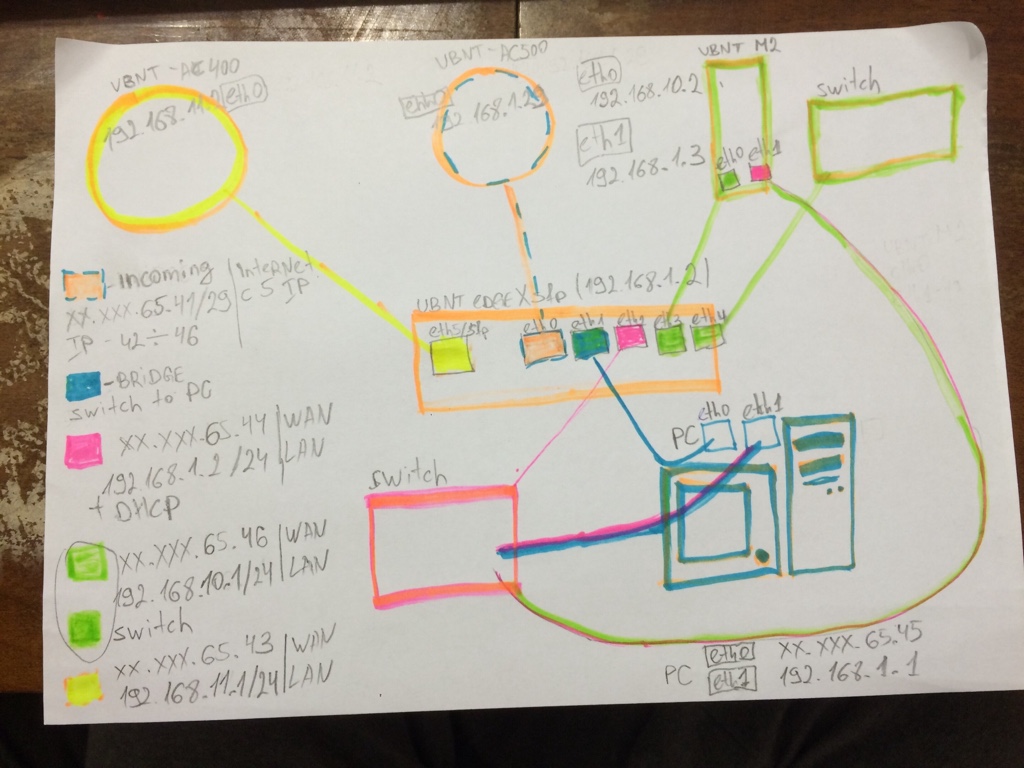 UBNT-AC 400
eth0
192.168.11.
UBNT-AC500
eth0
192.168.1.29
UBNT M2
eth0
192.168.10.2
eth1
192.168.1.3
eth0 eth1
switch
- Incoming | INTERNET
XX.XXX.65.41/29 | C 5 IP
IP - 42÷46
UBNT EDGE X Sfp (192.168.1.2)
eth5/Sfp eth0 eth1 eth2 eth3 eth4
- BRIDGE
switch to PC
XX.XXX.65.44 | WAN
192.168.1.2/24 | LAN
+ DHCP
XX.XXX.65.46 | WAN
192.168.10.1/24 | LAN
switch
XX.XXX.65.43 | WAN
192.168.11.1/24 | LAN
switch
PC eth0 eth1
PC eth0 XX.XXX.65.45
eth1 192.168.1.1